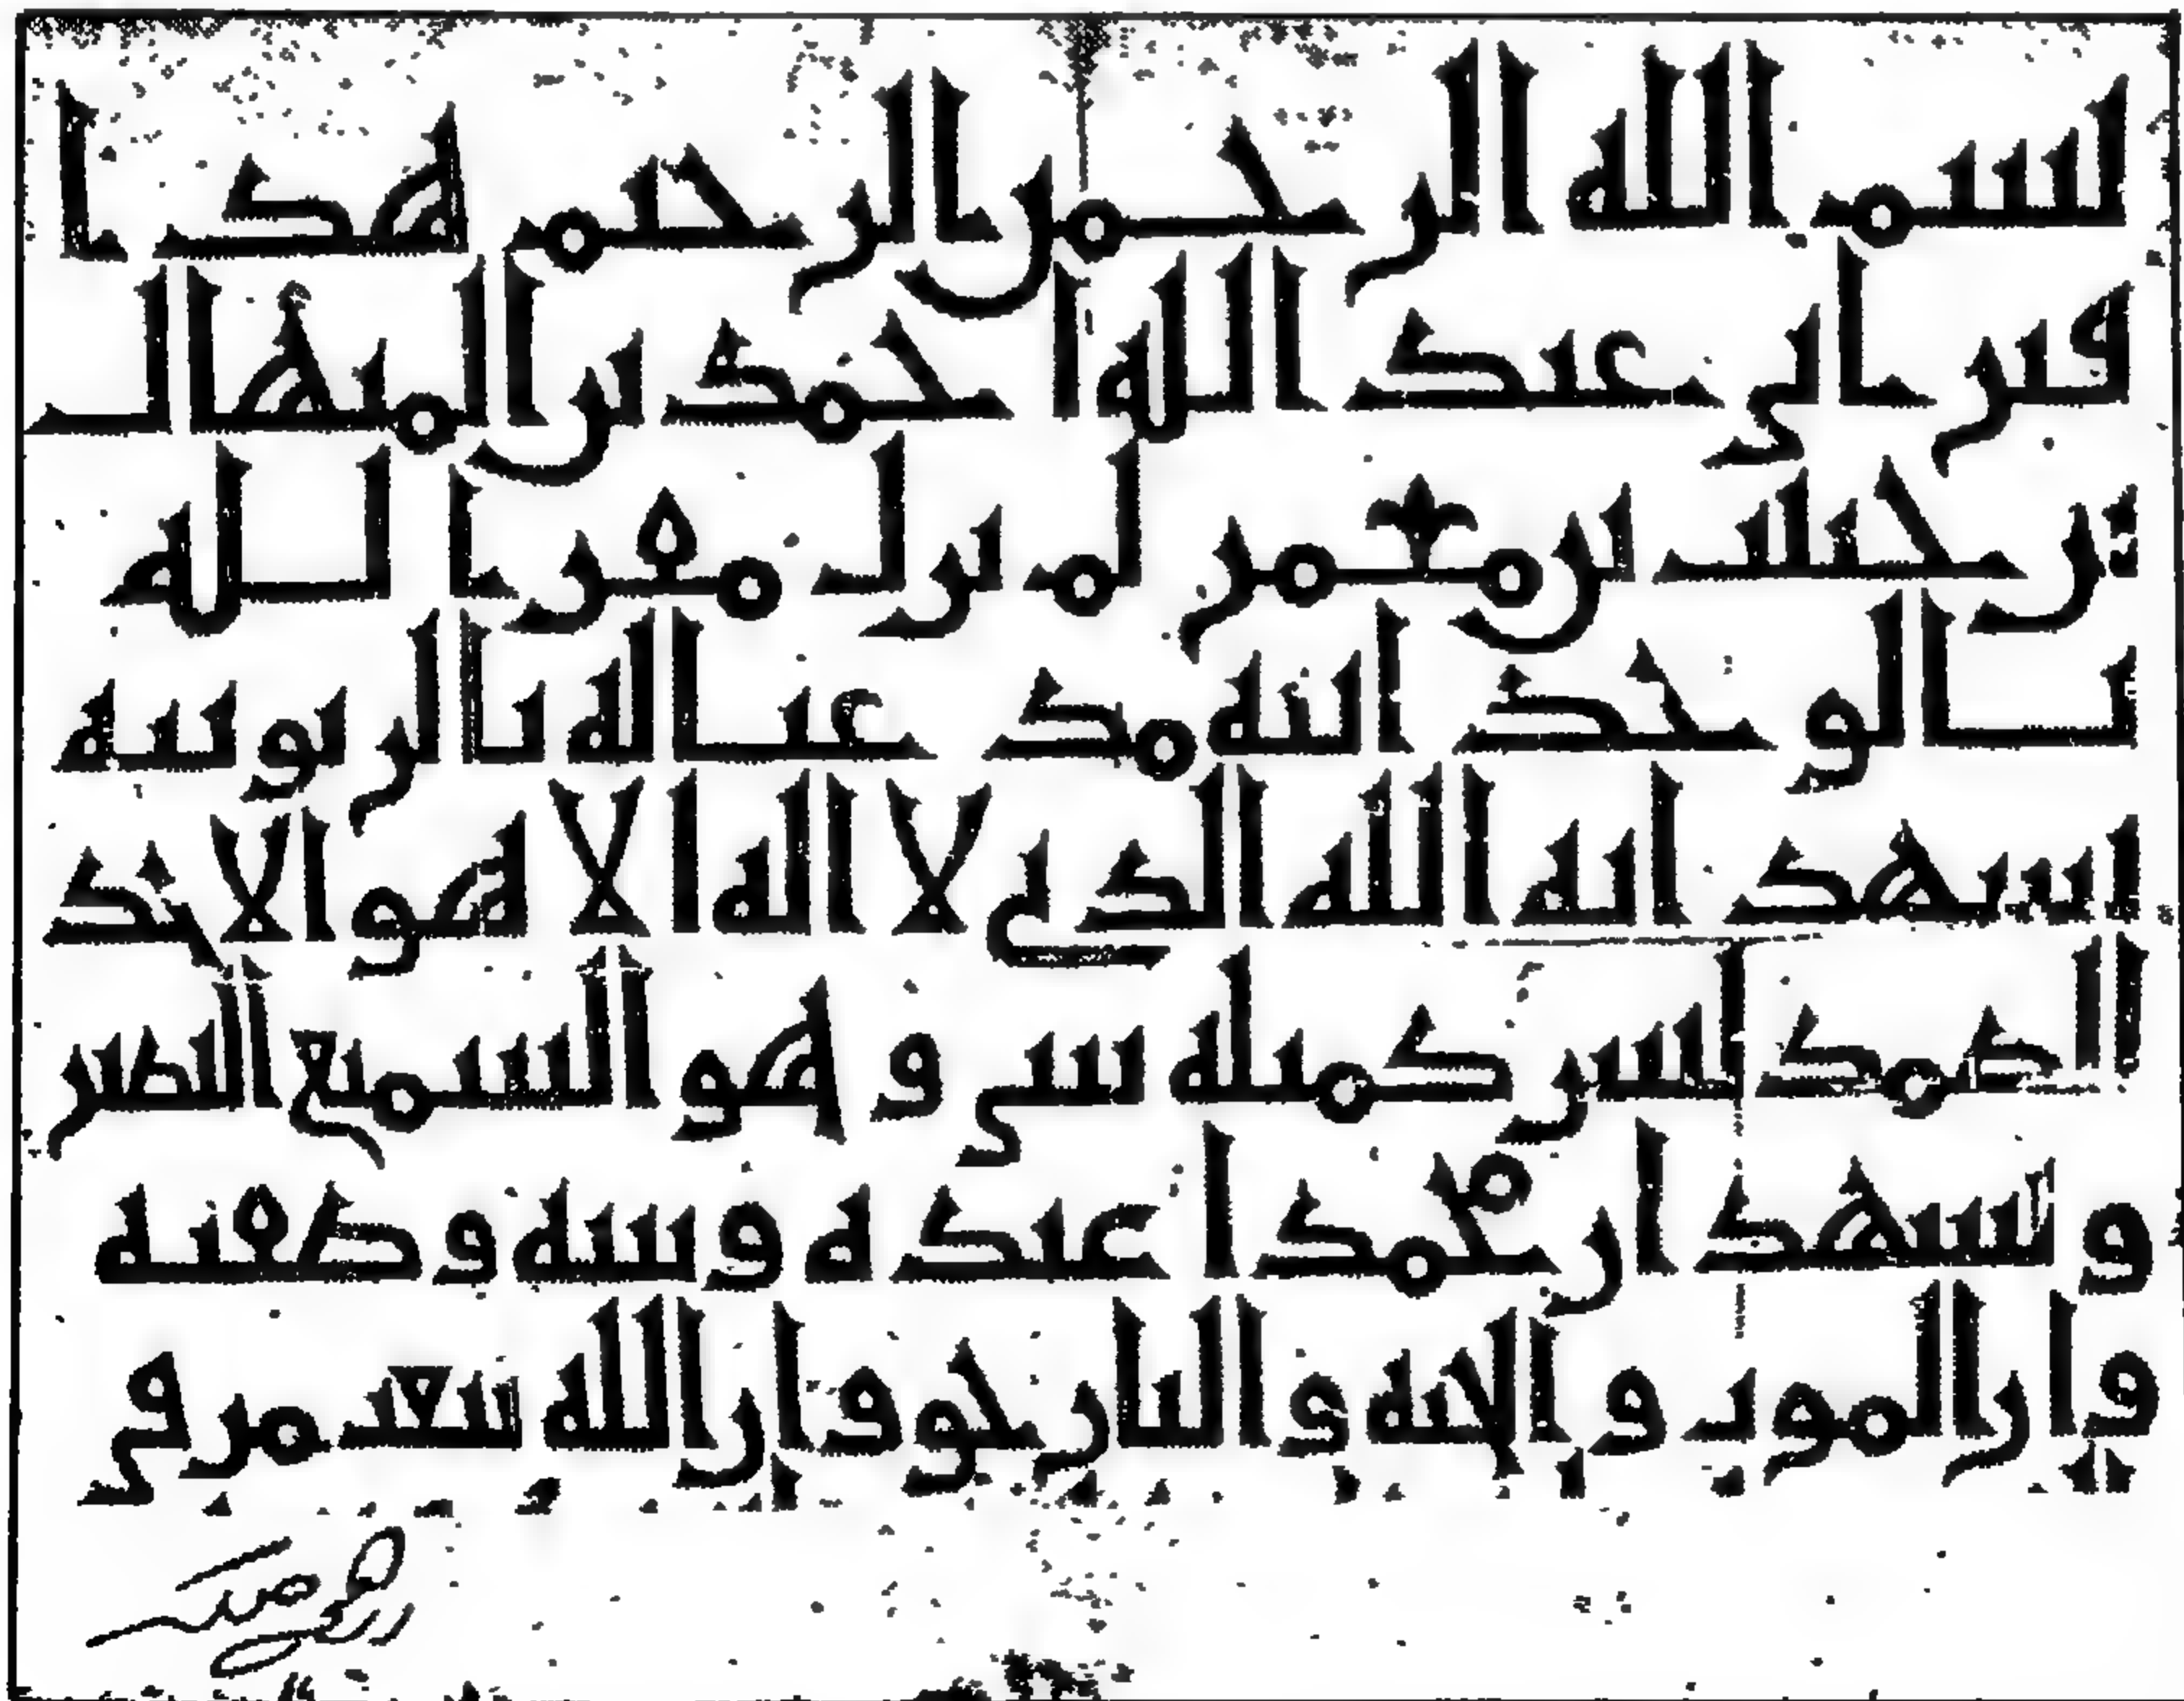 بسم الله الرحمن الرحيم هذا
قبر ابي عبد الله احمد بن
بن معمر لم يزل مقرا لله
بالوحدانيته مذعنا له بالربوبيه
يشهد انه الله الذي لا اله الا هو الاحد
الصمد ليس كمثله شي وهو السميع البصير
ويشهد ان محمدا عبده ونبيه وصفيه
وان الموت والجنه والنار حق وان الله يبعث من في